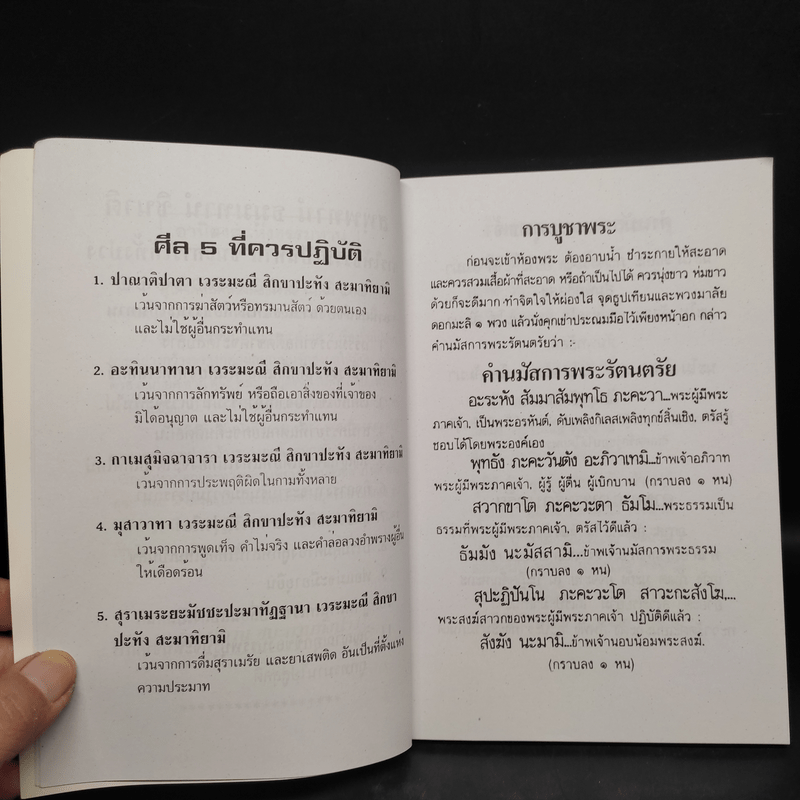 ศีล 5 ที่ควรปฏิบัติ
1. ปาณาติปาตา เวระมะณี สิกขาปะทัง สะมาทิยามิ
เว้นจากการฆ่าสัตว์หรือทรมานสัตว์ ด้วยตนเอง
และไม่ใช้ผู้อื่นกระทำแทน
2. อะทินนาทานา เวระมะณี สิกขาปะทัง สะมาทิยามิ
เว้นจากการลักทรัพย์ หรือถือเอาสิ่งของที่เจ้าของ
มิได้อนุญาต และไม่ใช้ผู้อื่นกระทำแทน
3. กาเมสุมิจฉาจารา เวระมะณี สิกขาปะทัง สะมาทิยามิ
เว้นจากการประพฤติผิดในกามทั้งหลาย
4. มุสาวาทา เวระมะณี สิกขาปะทัง สะมาทิยามิ
เว้นจากการพูดเท็จ คำไม่จริง และคำล่อลวงอำพรางผู้อื่น
ให้เดือดร้อน
5. สุราเมระยะมัชชะปะมาทัฏฐานา เวระมะณี สิกขา
ปะทัง สะมาทิยามิ
เว้นจากการดื่มสุราเมรัย และยาเสพติด อันเป็นที่ตั้งแห่ง
ความประมาท
การบูชาพระ
ก่อนจะเข้าห้องพระ ต้องอาบน้ำ ชำระกายให้สะอาด
และควรสวมเสื้อผ้าที่สะอาด หรือถ้าเป็นไปได้ ควรนุ่งขาว ห่มขาว
ด้วยก็จะดีมาก ทำจิตใจให้ผ่องใส จุดธูปเทียนและพวงมาลัย
ดอกมะลิ ๑ พวง แล้วนั่งคุกเข่าประณมมือไว้เพียงหน้าอก กล่าว
คำนมัสการพระรัตนตรัยว่า :-
คำนมัสการพระรัตนตรัย
อะระหัง สัมมาสัมพุทโธ ภะคะวา...พระผู้มีพระ
ภาคเจ้า, เป็นพระอรหันต์, ดับเพลิงกิเลสเพลิงทุกข์สิ้นเชิง, ตรัสรู้
ชอบได้โดยพระองค์เอง
พุทธัง ภะคะวันตัง อะภิวาเทมิ...ข้าพเจ้าอภิวาท
พระผู้มีพระภาคเจ้า, ผู้รู้ ผู้ตื่น ผู้เบิกบาน (กราบลง ๑ หน)
สวากขาโต ภะคะวะตา ธัมโม...พระธรรมเป็น
ธรรมที่พระผู้มีพระภาคเจ้า, ตรัสไว้ดีแล้ว :
ธัมมัง นะมัสสามิ...ข้าพเจ้านมัสการพระธรรม
(กราบลง ๑ หน)
สุปะฏิปันโน ภะคะวะโต สาวะกะสังโฆ,...
พระสงฆ์สาวกของพระผู้มีพระภาคเจ้า ปฏิบัติดีแล้ว :
สังฆัง นะมามิ...ข้าพเจ้านอบน้อมพระสงฆ์.
(กราบลง ๑ หน)